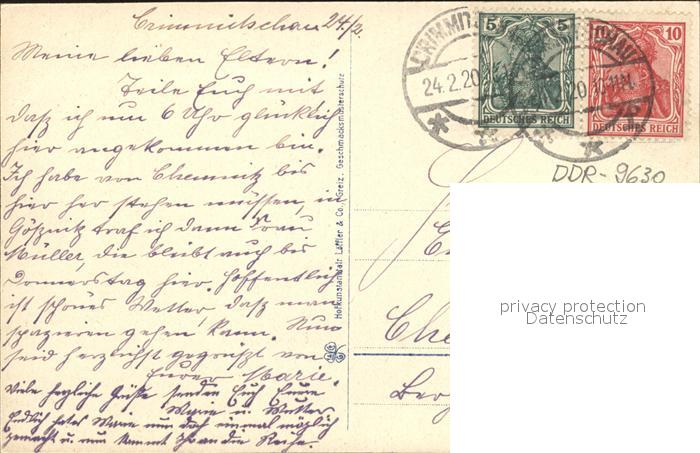 Crimmitschau 24/2
Meine lieben Eltern!
Teile Euch mit
daß ich um 6 Uhr glücklich
hier angekommen bin.
Ich habe von Chemnitz bis
hier her stehen müssen, in
Gößnitz traf ich dann Frau
Müller, die bleibt auch bis
Donnerstag hier. Hoffentlich
ist schönes Wetter, daß man
spazieren gehen kann. Nun
seid herzlichst gegrüßt von
Eurer Marie.
Viele herzliche Grüße senden Euch Eure
Marie u.
Endlich hat es Marie nun doch einmal möglich
gemacht u. nun kommt Ihr an die Reihe.
Hofkunstanstalt Löffler & Co., Greiz. Geschmacksmusterschutz
24.2.20
5 5
DEUTSCHES REICH
10
DEUTSCHES REICH
DDR-9630
Che
privacy protection
Datenschutz